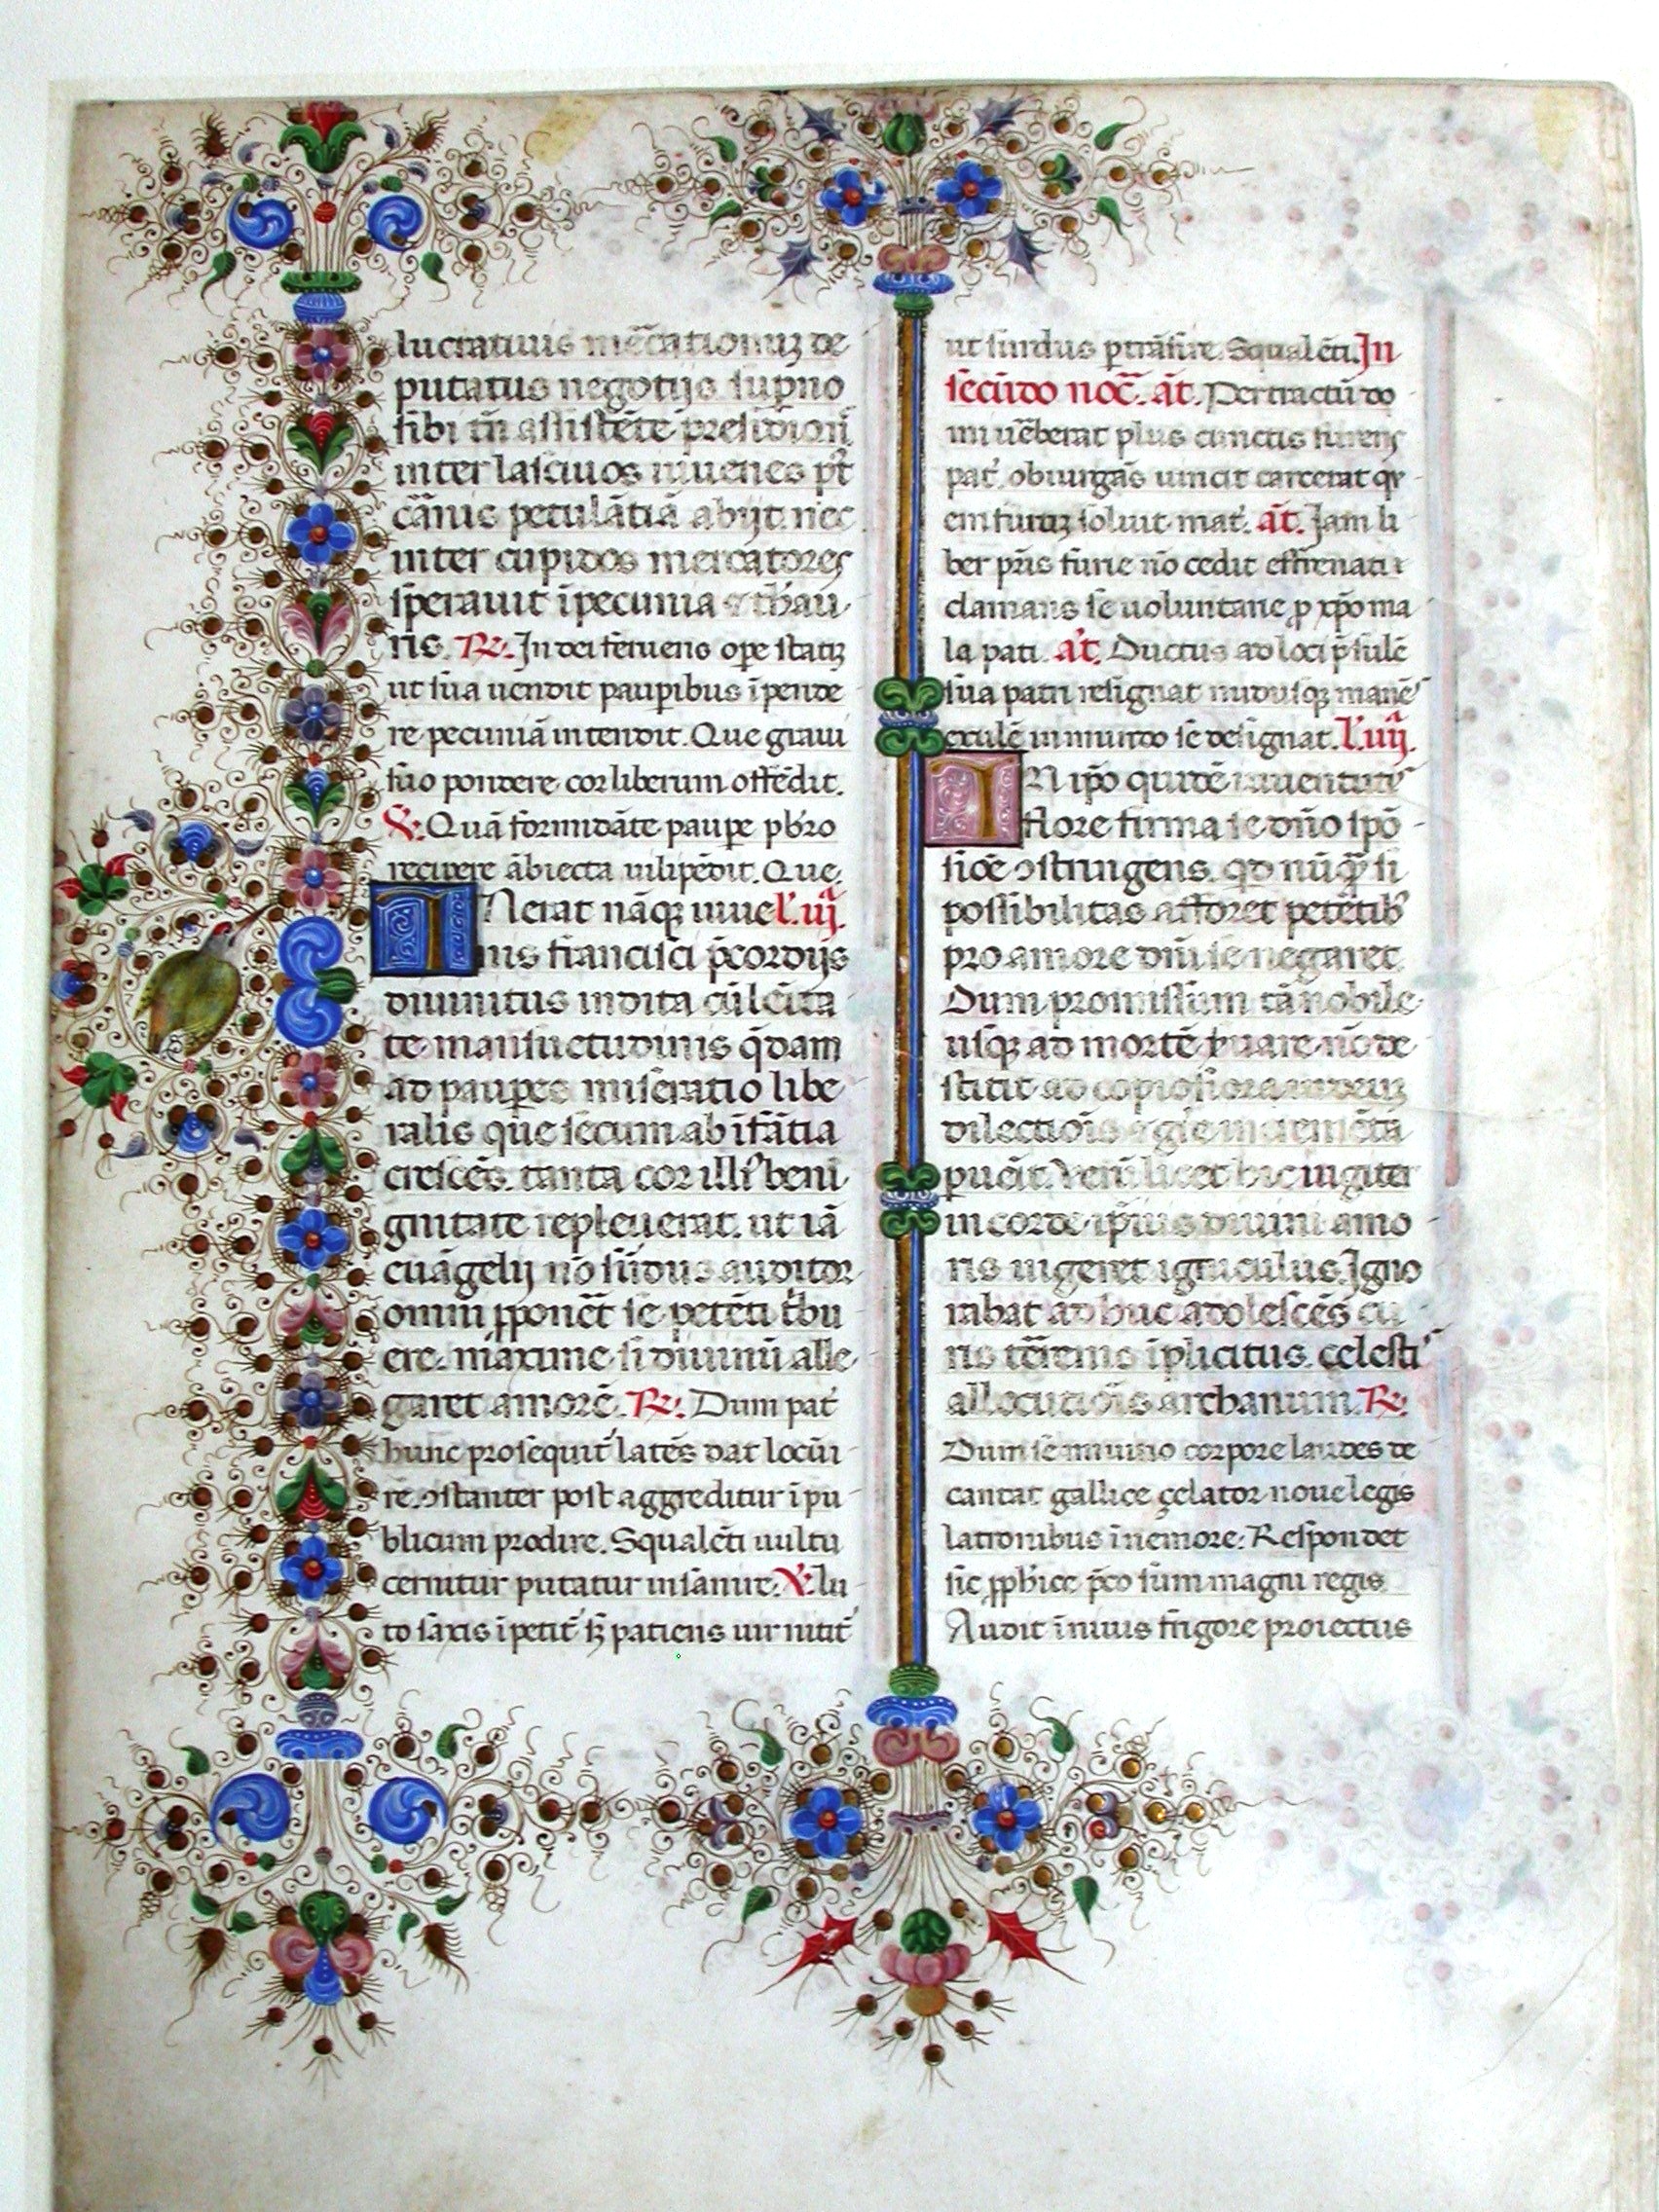 lucratiuis mẽcationuʒ de
putatus negotijs. sup̃no
sibi tñ assistẽte presidio. ñ
inter lasciuos iuuenes p̃t
cãnis petulãtiã abijt. nec
inter cupidos mercatores
sperauit ĩ pecunia & thau
ris. R̷. In dei feruens ope statiʒ
ut sua uendit pauꝑibus ĩpende
re pecuniã intendit. Que graui
suo pondere cor liberum offẽdit.
V̷. Quã formidãte paupe pb̃ro
recipere ãbiecta uilipẽdit. Que.
INerat nãqꝫ iuue l'. iij.
nis francisci p̃cordijs
diuinitus indita cũ leuita
te mansuetudinis q̃dam
ad pauꝑes miseratio libe
ralis que secum ab ĩfãtia
crescẽs. tanta cor illiꝰ beni
gnitate repleuerat. ut iã
euãgelij nõ surdus auditor
omni ꝓponẽt se petẽti t̃bu
ere. maxime si diuinũ alle
garet amorẽ. R̷. Dum pat̾
hunc prosequit̾ latẽs dat locũ
rẽ. ꝯstanter post aggreditur ĩ pu
blicum prodire. Squalẽti uultu
cernitur putatur insanire. V̷. lu
to saxis ĩpetit̾ sꝫ patiens uir nitit̾
ut surdus ꝑtrãsire. Squalẽti. In
secũdo noc̃. añt. Pertractũ do
mi ũẽberat plus cunctis furens
pat̾. obiurgãs uincit carcerat qꝫ
em furtiʒ soluit mat̾. añt. Jam li
ber pr̃is furie nõ cedit effrenati
clamans se uoluntarie ꝓ xp̃o ma
la pati. añt. Ductus ad loci p̃sulẽ
sua patri resignat nudusqꝫ manẽs
exulẽ in mundo se designat. l'. iiij.
IN ip̃o quidẽ iuuentutis
flore firma se dño spõ
siõe ꝯstringens. qd̾ nũqꝫ si
possibilitas afforet petẽtibꝰ
pro amore dñi se negaret.
Dum promissum tã nobile
usqꝫ ad mortẽ ẜuare nõ de
stitit ad copiosiora in deum
dilectiõis & grẽ incremẽta
puẽit. Verũ licet hic iugiter
in corde ip̃ius diuini amo
ris uigeret igniculus. Igno
rabat adhuc adolescẽs cu
ris terrenis ĩplicitus. çelestis
allocutiõis archanum. R̷.
Dum seminudo corpore laudes de
cantat gallice çelator noue legis
latronibus ĩ nemore. Respondet
sic ꝓph̃ice p̃co sum magni regis
Audit ĩ niuis frigore proiectus